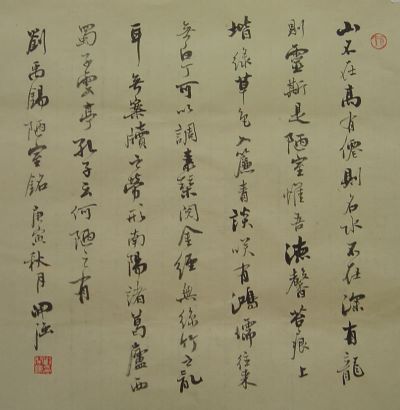 山不在高有僊則名水不在深有龍
則靈斯是陋室惟吾德馨苔痕上
堦綠草色入簾青談咲有鴻儒往來
無白丁可以調素琴閱金經無絲竹之亂
耳無案牘之勞形南陽諸葛廬西
蜀子雲亭孔子云何陋之有
劉禹錫陋室銘庚寅秋月